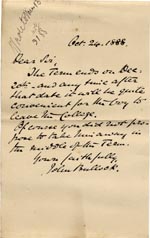 Oct. 24. 1888.
Dear Sir,
The Term ends on Dec
and any time after
that date it will be quite
convenient for the boy to
leave the College.
Of course you did not pro-
pose to take him away in
the middle of the Term.
Yours faithfully,
John Bullock.